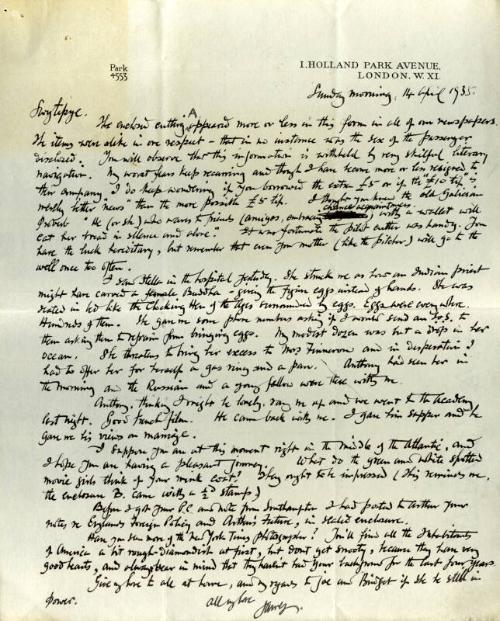 Park
4553
1, HOLLAND PARK AVENUE,
LONDON, W. XI.
Sunday morning, 14 April 1935.
The enclosed cutting A appeared more or less in this form in all of our newspapers.
The items were alike in one respect – that in no instance was the sex of the passenger
disclosed. You will observe that this information is withheld by very skilful literary
navigation. My worst fears keep recurring and though I have become more or less resigned to
their company I do keep wondering if you borrowed the extra £5 or if the £10 tip
"news" then the more possible £5 tip. I the old Galician
Proverb "He (or she) who waves to friends (amigos, ) with a wallet will
eat her bread in silence and alone." It was fortunate the pilot cutter was handy. You
have the luck hereditary, but remember that even your mother (like the pitcher) will go to the
well once too often.
I saw Stella in the hospital yesterday. She struck me as how an Indian priest
might have carved a female Buddha – giving the figure eggs instead of hands. She was
seated in bed like the Clucking Hen of the Ages surrounded by eggs. Eggs were everywhere.
Hundreds of them. She gave me some phone numbers asking if I would send an S.O.S. to
them asking them to refrain from bringing eggs. My modest dozen was but a drop in her
ocean. She threatens to bring her excess to Mrs Finneron and in desperation I
had to offer her for herself a gas ring and a pan. Antony had seen her in
the morning and the Russian and a young fellow were there with me.
Antony, thinking I might be lonely, rang me up and we went to the Academy
last night. Good French film. He came back with me. I gave him supper and he
gave me his views on marriage.
I suppose you are at this moment right in the middle of the Atlantic, and
I hope you are having a pleasant journey. What do the green and white spotted
movie girls think of your mink coat? They ought to be impressed (this reminds me,
the enclosure B. came with a ½d stamp)
Before I got your P.C. and note from Southampton I had posted to Arthur your
notes re England's Foreign Policy and Arthur's Future, in sealed enclosure.
Have you seen more of the New York Times photographer? You'll find all the Inhabitants
of America a bit rough-diamondish at first, but don't get snooty, because they have very
good hearts, and always bear in mind that they haven't had your background for the last four years.
Give my love to all at home, and my regards to Joe and Bridget if she be still in
power.
All my love